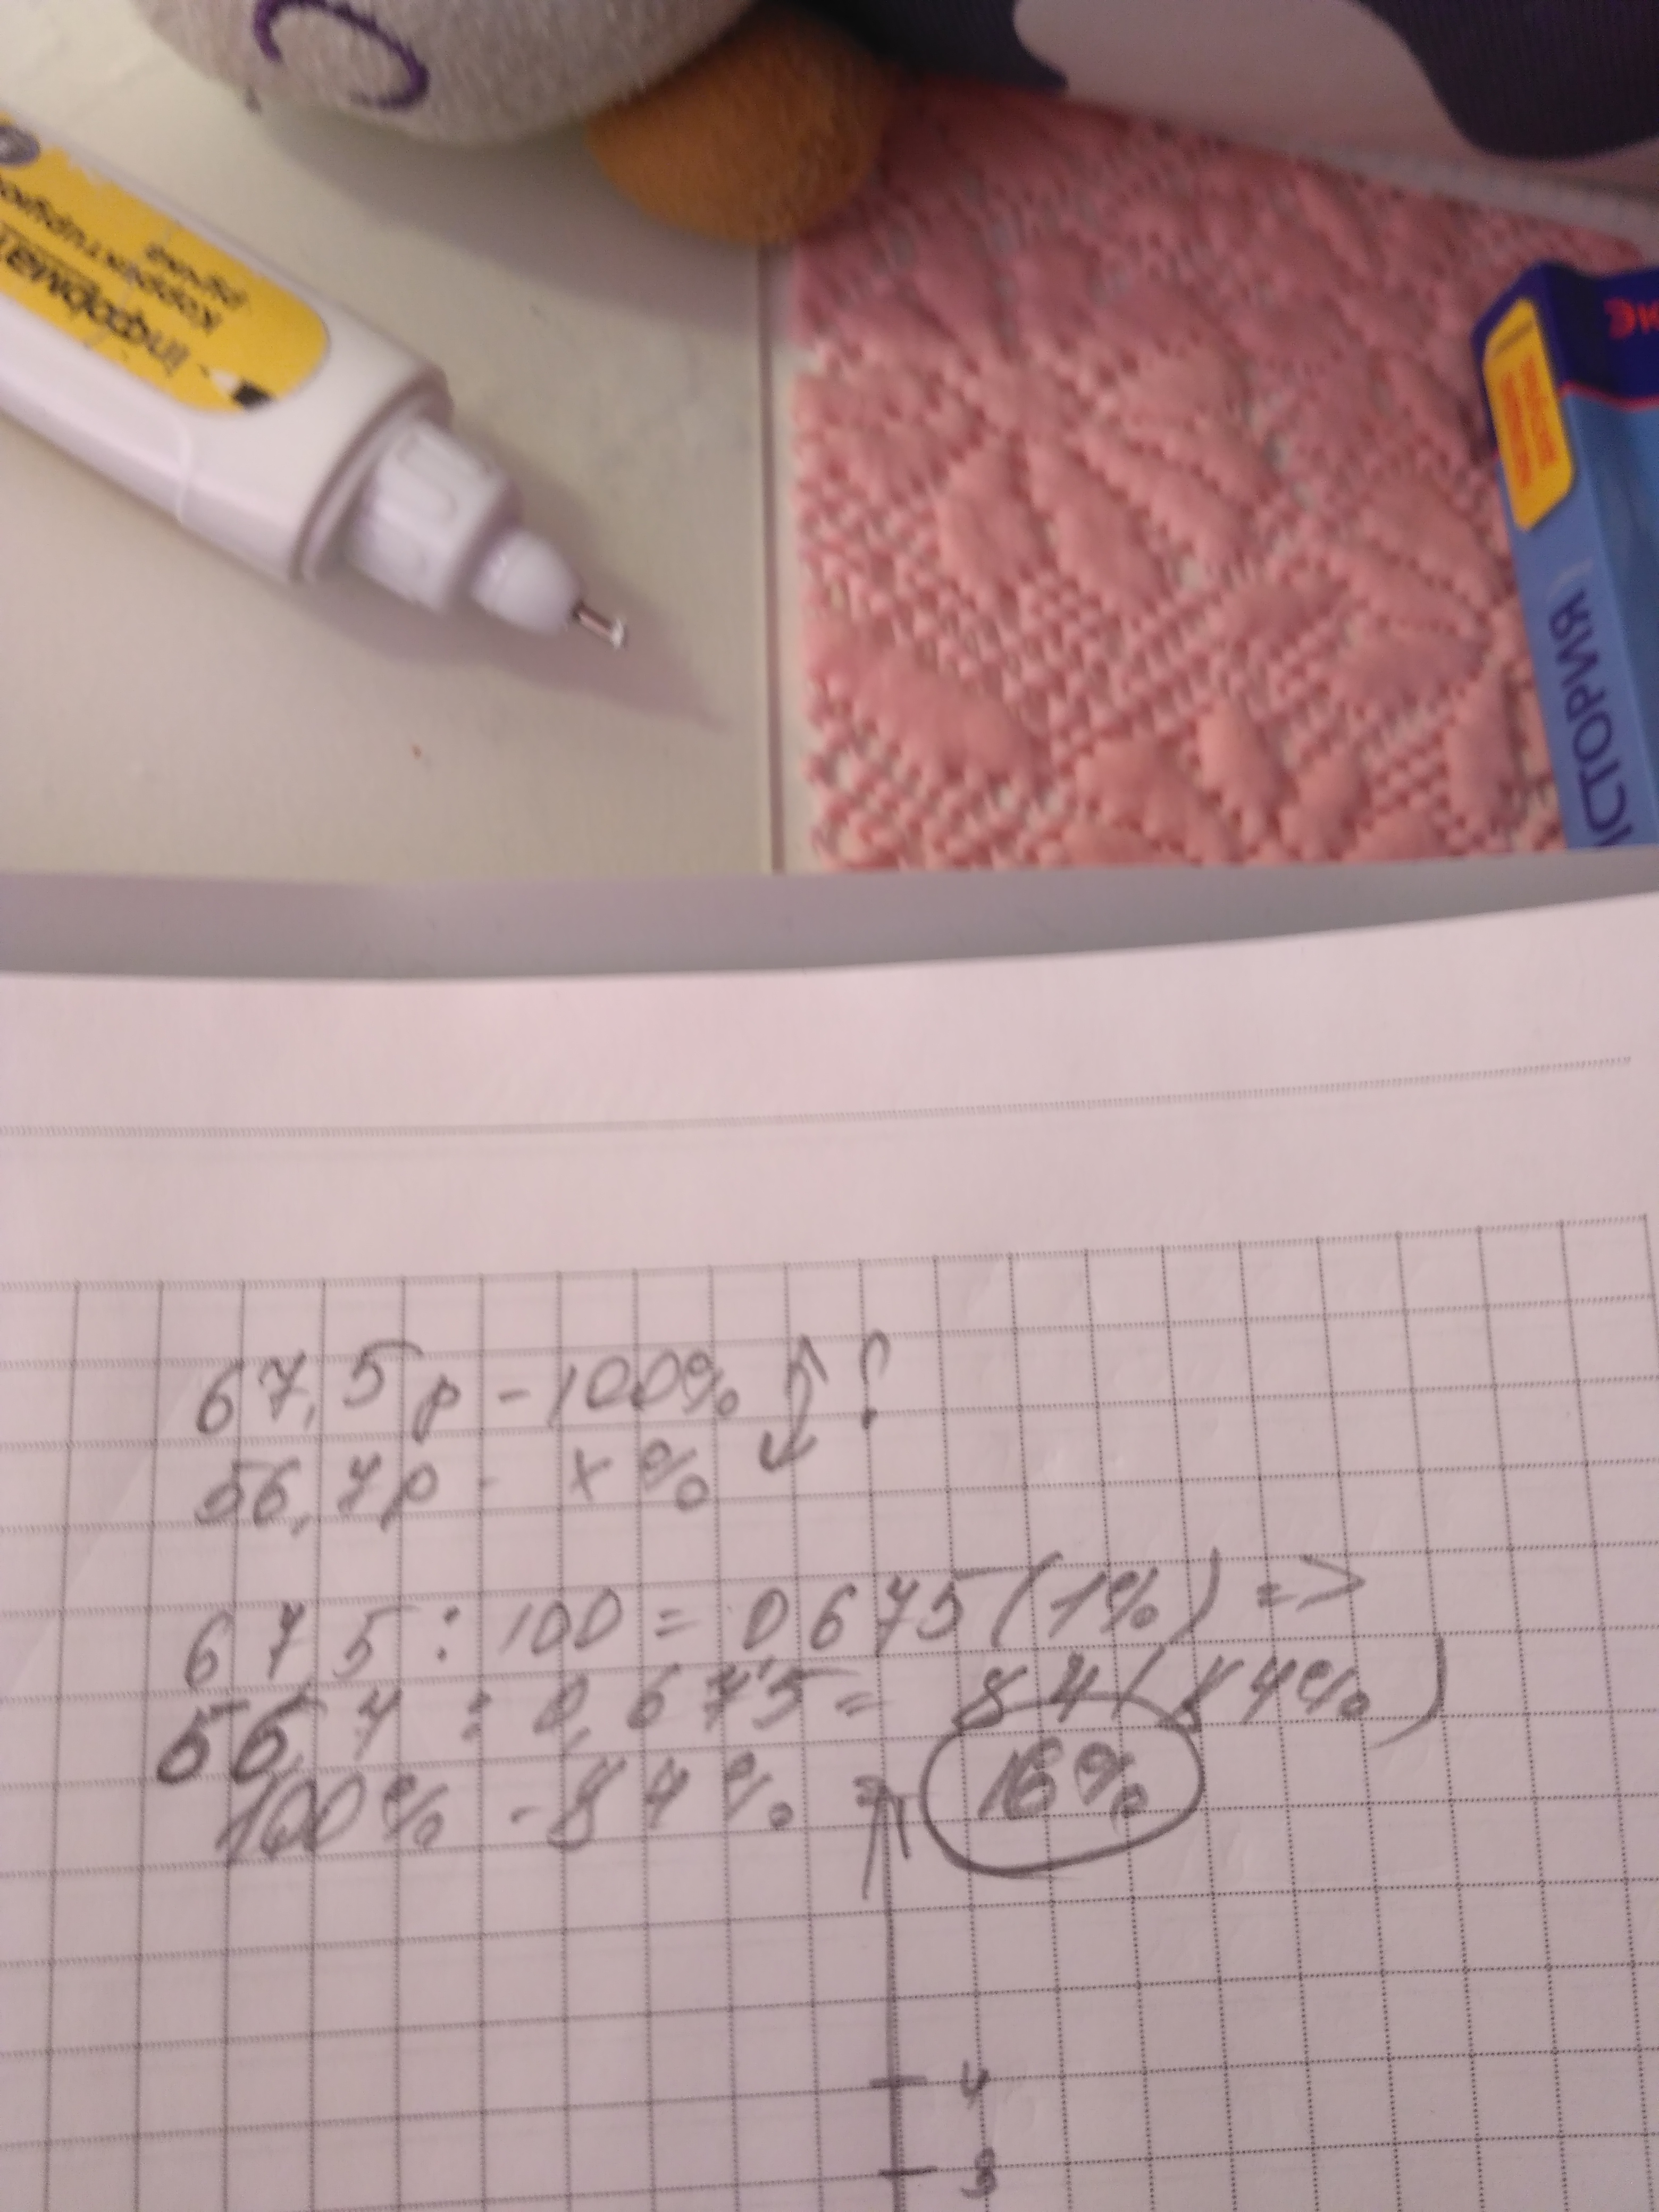 Информат
Корректирую
ИСТОРИЯ
67,5р - 100% ?
56,7р - x%
67,5 : 100 = 0,675 (1%) =>
56,7 : 0,675 = 84 (84%)
100% - 84% = 16%
4
3